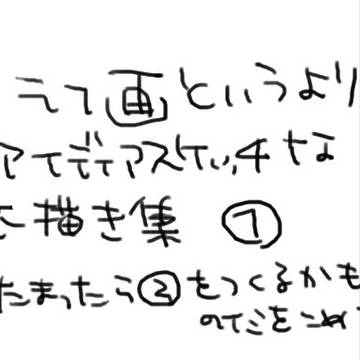 えて画というより
アイディアスケッチな
描き集 ①
たまったら②をつくるかも
のイミをこめ